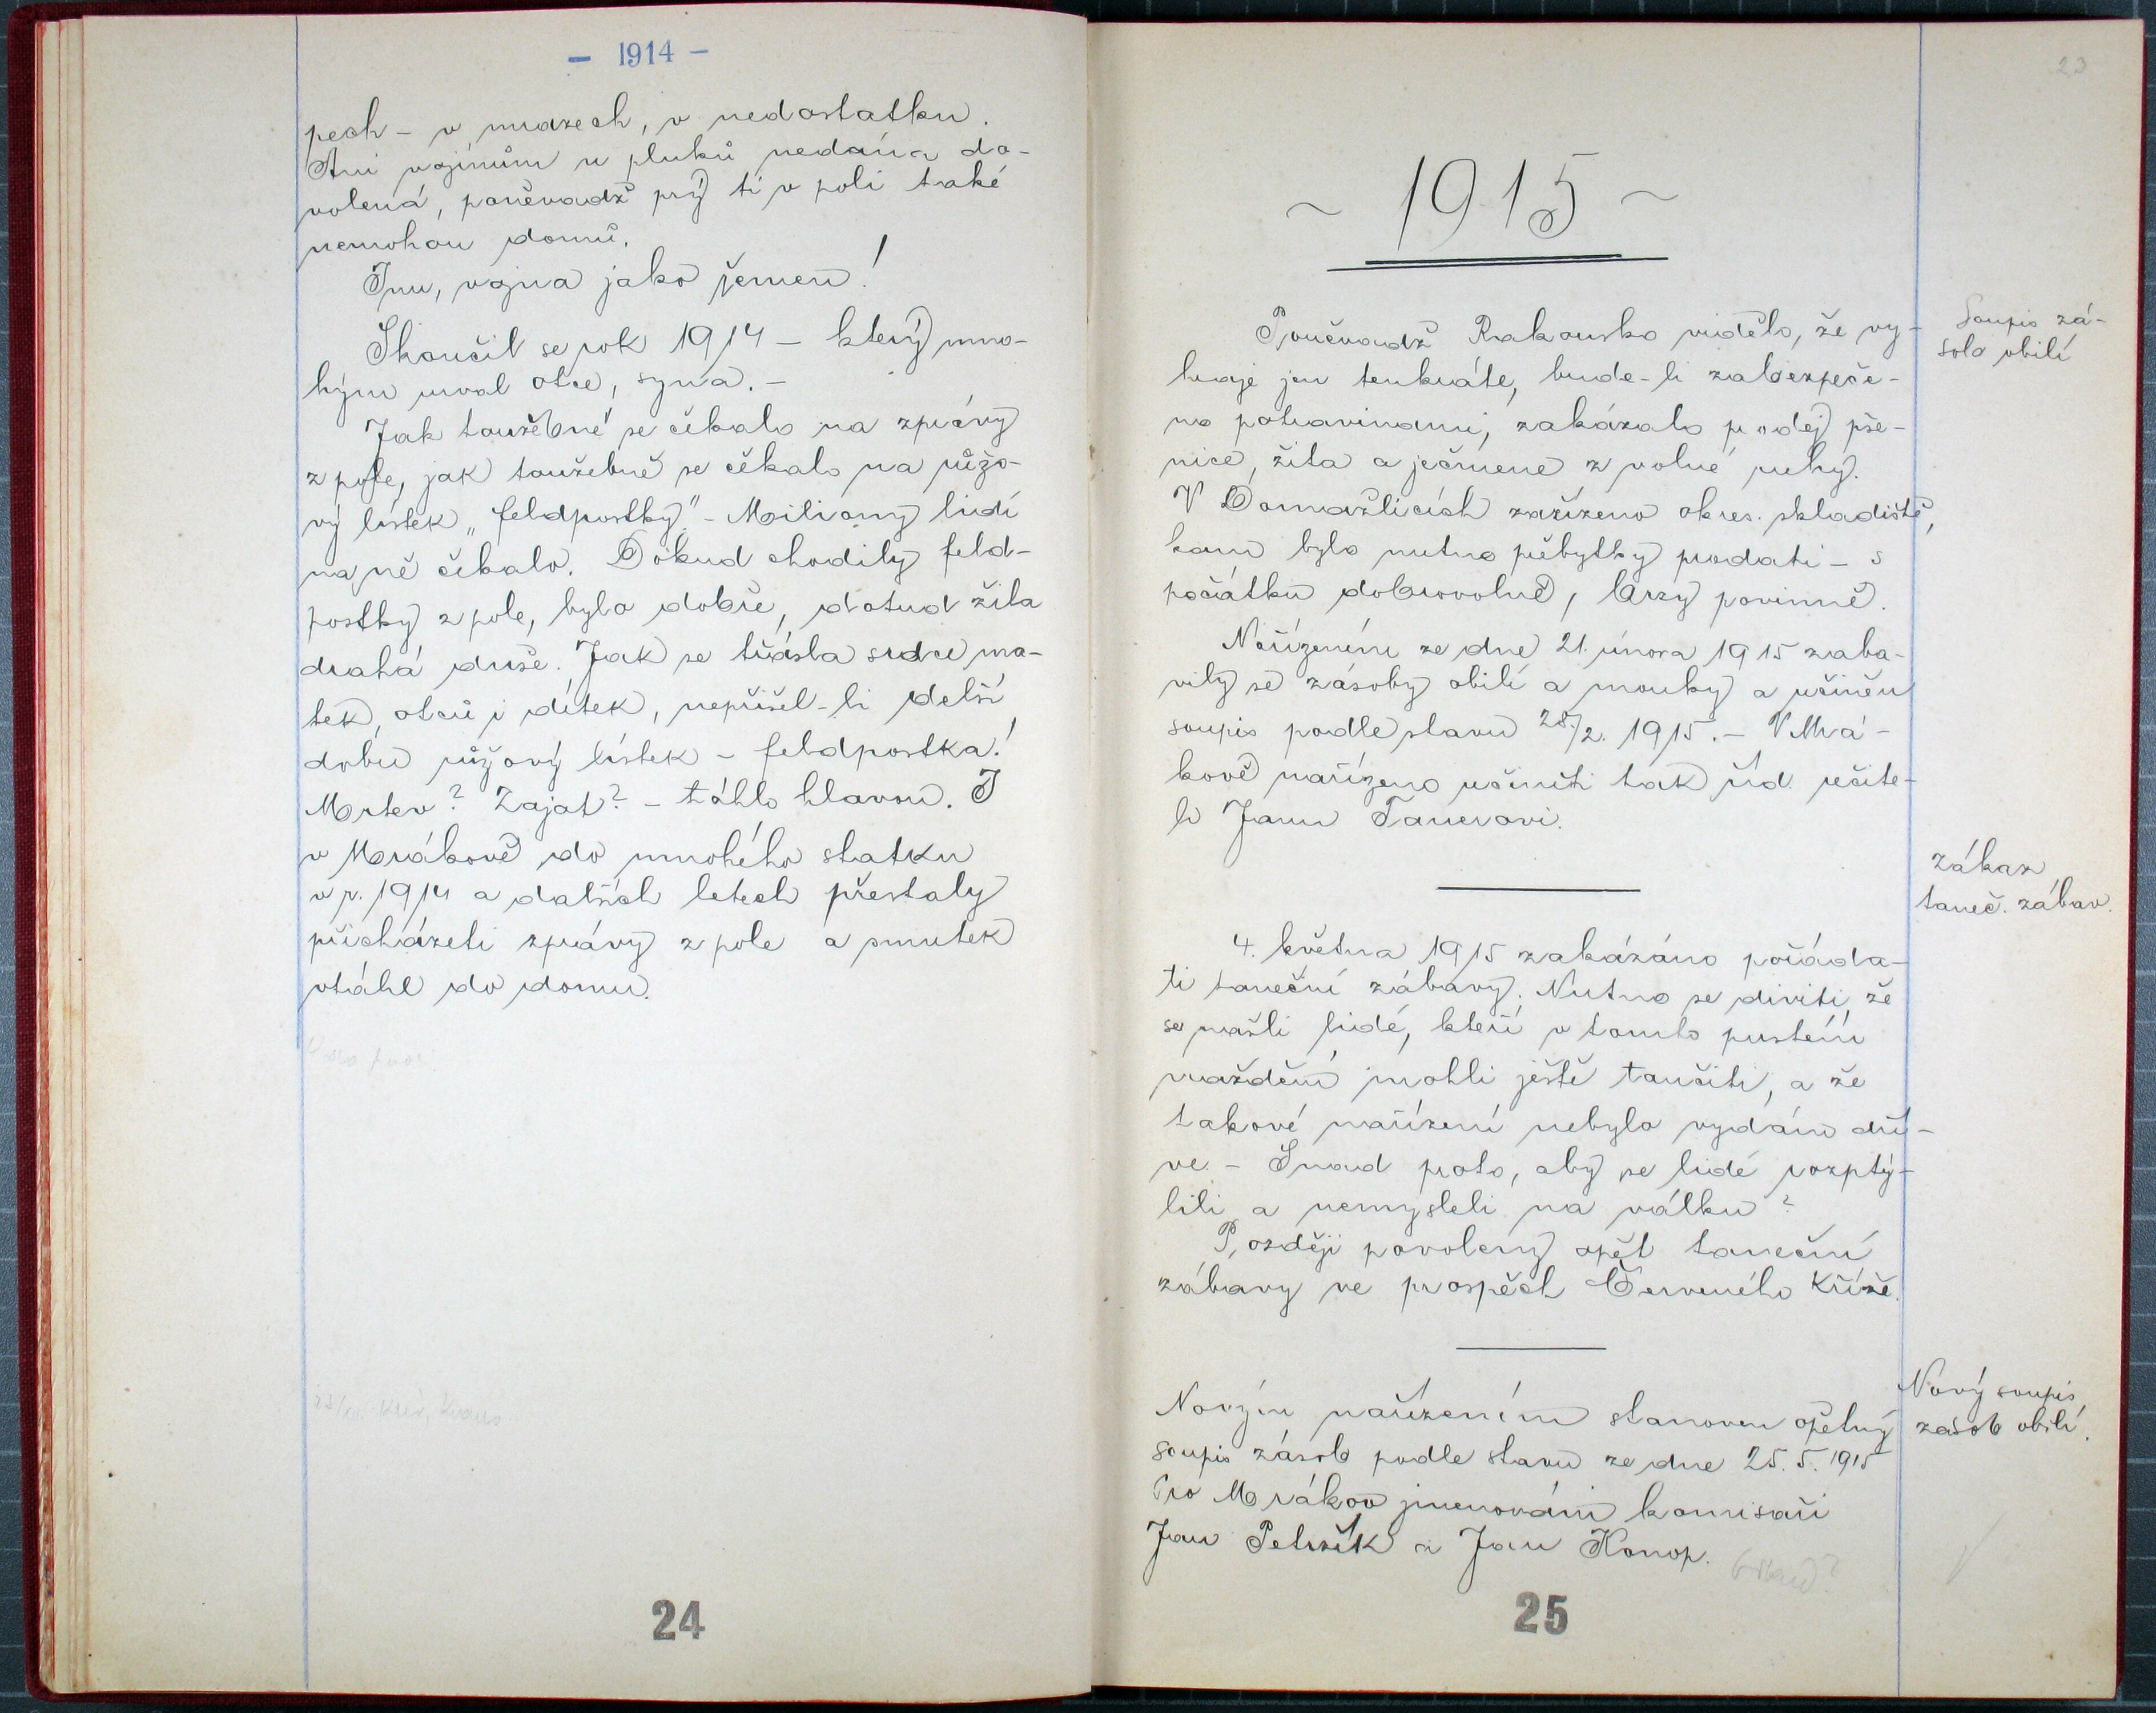 - 1914 -
pech - v mrazech, v nedostatku.
Ani vojínům u pluků nedána do-
volená, poněvadž prý ti v poli také
nemohou domů.
Inu, vojna jako řemen!
Skončil se rok 1914 - který mno-
hým urval otce, syna. -
Jak toužebně se čekalo na zprávy
z pole, jak toužebně se čekalo na růžo-
vý lístek „feldpostky" - Miliony lidí
na ně čekalo. Dokud chodily feld-
postky z pole, bylo dobře, dotud žila
drahá duše. Jak se třásla srdce ma-
tek, otců i dítek, nepřišel-li delší
dobu růžový lístek - feldpostka!
Mrtev? Zajat? - táhlo hlavou. I
v Mrákově do mnohého statku
v r. 1914 a dalších letech přestaly
přicházeti zprávy z pole a smutek
vtáhl do domu.
24
23
~ 1915 ~
Poněvadž Rakousko vidělo, že vy-
hraje jen tenkráte, bude-li zabezpeče-
no potravinami, zakázalo prodej pše-
nice, žita a ječmene z volné ruky.
V Domažlicích zařízeno okres. skladiště,
kam bylo nutno přebytky prodati - s
počátku dobrovolně, brzy povinně.
Soupis zá-
sob obilí
Nařízením ze dne 21. února 1915 zaba-
vily se zásoby obilí a mouky a učiněn
soupis podle stavu 28./2. 1915. - V Mrá-
kově nařízeno učiniti tak říd. učite-
li Janu Tauerovi.
Zákaz
taneč. zábav.
4. května 1915 zakázáno pořáda-
ti taneční zábavy. Nutno se diviti, že
se našli lidé, kteří v tomto pustém
vraždění mohli ještě tančiti, a že
takové nařízení nebylo vydáno dří-
ve. - Snad proto, aby se lidé rozptý-
lili a nemysleli na válku?
Později povoleny opět taneční
zábavy ve prospěch Červeného kříže.
Nový soupis
zásob obilí.
Novým nařízením stanoven opětný
soupis zásob podle stavu ze dne 25. 5. 1915
Pro Mrákov jmenováni komisaři
Jan Petržík a Jan Konop.
25